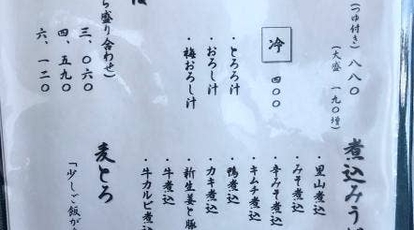 (つゆ付き) 八八〇
(大盛 一九〇増)
冷 四〇〇
・とろろ汁
・おろし汁
・梅おろし汁
盛り合わせ)
三、〇六〇
四、五九〇
六、一二〇
煮込みう
・里山煮込
・みそ煮込
・辛みそ煮込
・キムチ煮込
・鴨煮込
・カキ煮込
・新生姜と豚
・牛煮込
・牛カルビ煮込
麦とろ
「少しご飯が